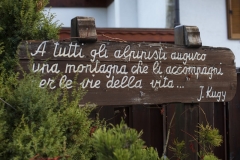 A tutti gli alpinisti auguro
una montagna che li accompagni
er le vie della vita...
J. Kugy